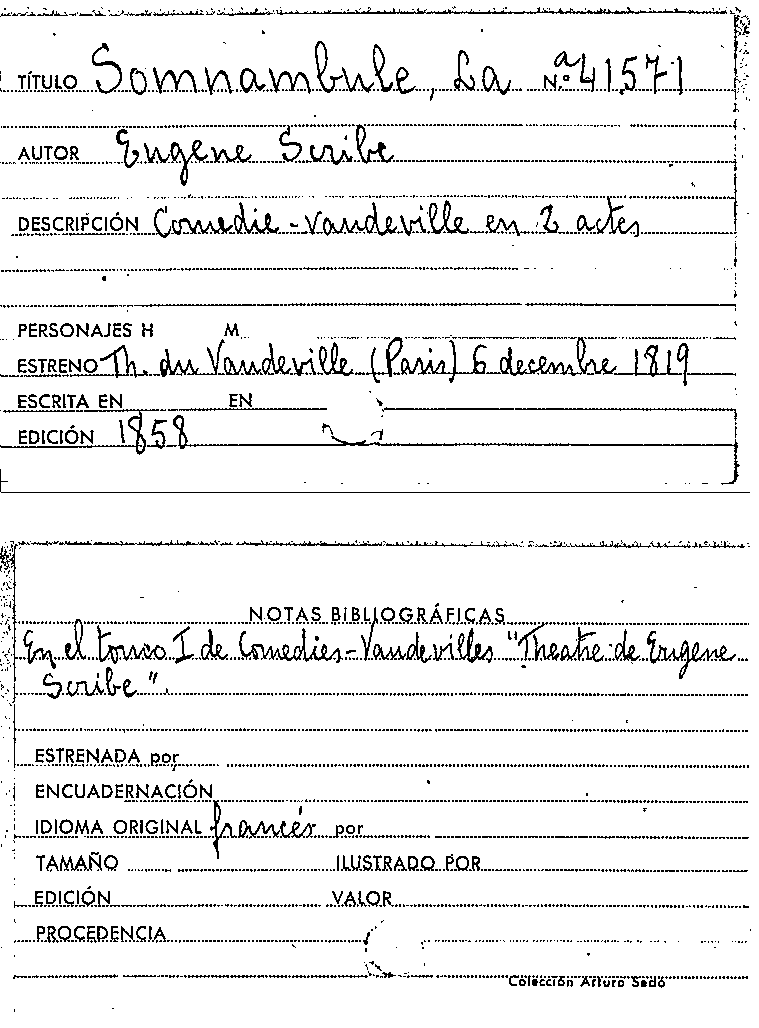 TÍTULO Somnambule, La N.º a 41571
AUTOR Eugene Scribe
DESCRIPCIÓN Comedie-Vaudeville en 2 actes
PERSONAJES H M
ESTRENO Th. du Vaudeville (Paris) 6 decembre 1819
ESCRITA EN EN
EDICIÓN 1858
NOTAS BIBLIOGRÁFICAS
En el tomo I de Comedies-Vaudevilles "Theatre de Eugene
Scribe".
ESTRENADA por
ENCUADERNACIÓN
IDIOMA ORIGINAL francés por
TAMAÑO ILUSTRADO POR
EDICIÓN VALOR
PROCEDENCIA
Colección Arturo Sedó